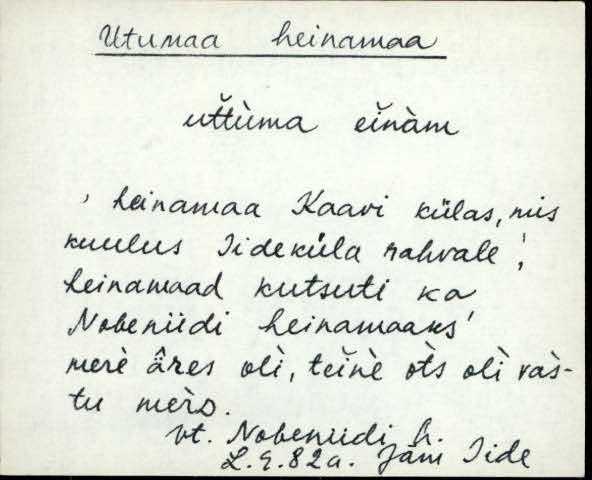 Utumaa heinamaa
uttùma eĭnàm
' heinamaa Kaavi külas, mis
kuulus Iideküla rahvale ',
heinamaad kutsuti ka
Nobeniidi heinamaaks'
merè âres olì, teĭnè òts olì vàs-
tu mèrd.
vt. Nobeniidi h.
Jäm Iide